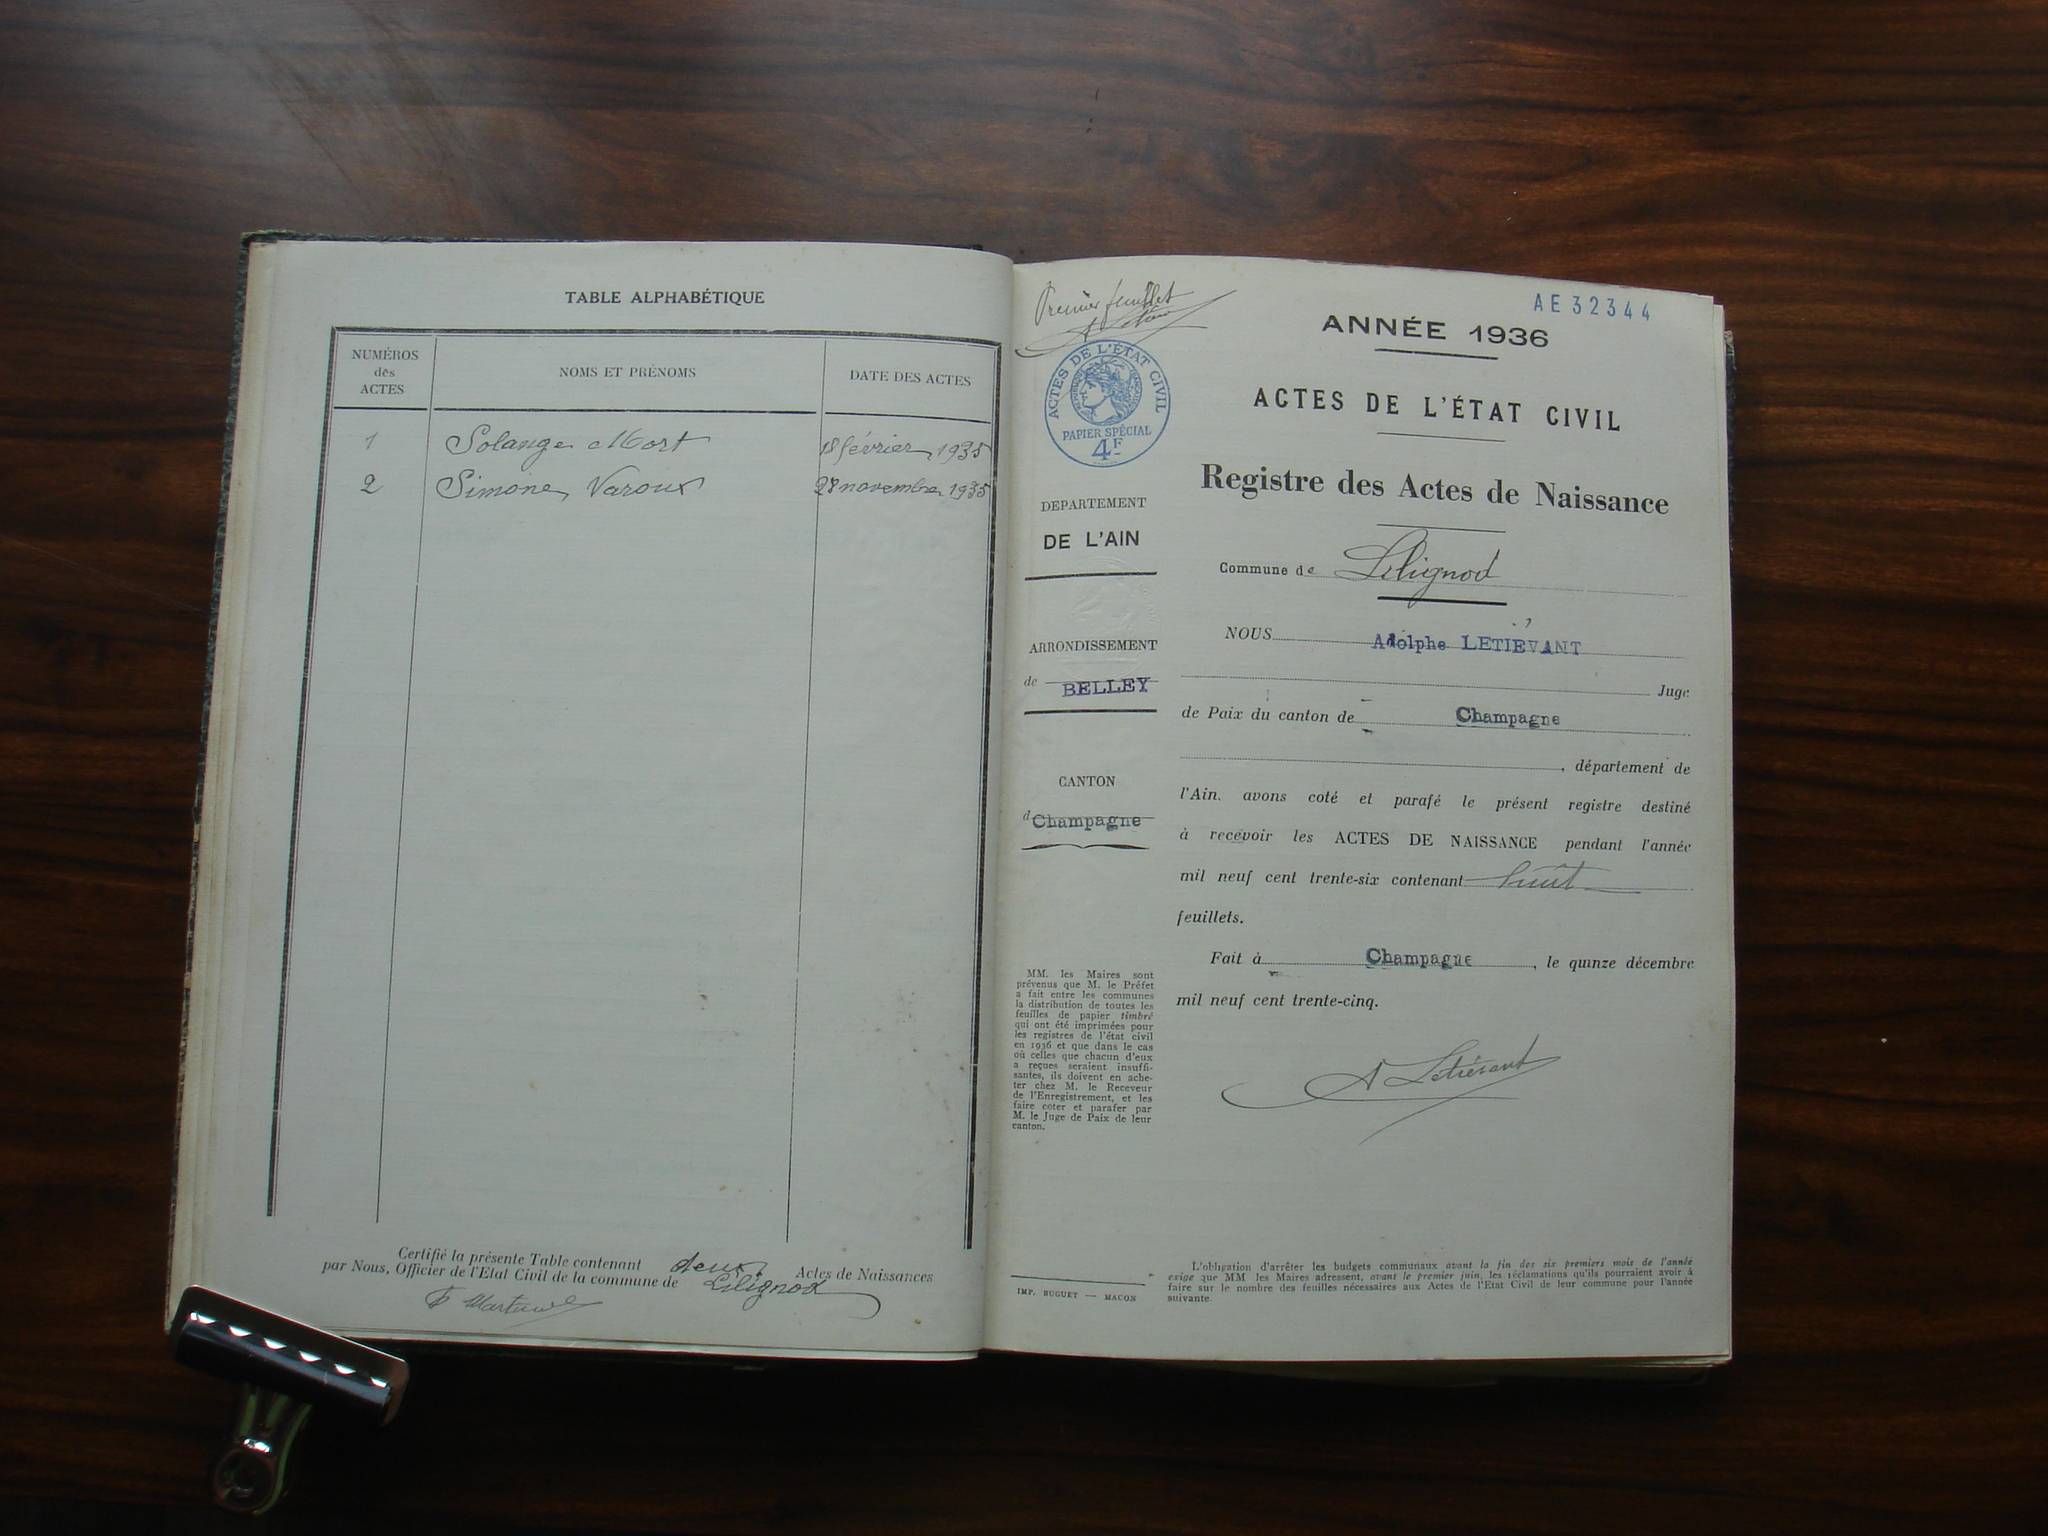 TABLE ALPHABÉTIQUE
NUMÉROS
des
ACTES
NOMS ET PRÉNOMS
DATE DES ACTES
1 Solange Mort 18 février 1935
2 Simone Varoux 28 novembre 1935
Certifié la présente Table contenant deux Actes de Naissances
par Nous, Officier de l'Etat Civil de la commune de Lilignod
Premier feuillet
AE32344
ANNÉE 1936
ACTES DE L'ÉTAT CIVIL
PAPIER SPÉCIAL
4F
ACTES DE L'ÉTAT CIVIL
Registre des Actes de Naissance
DEPARTEMENT
DE L'AIN
ARRONDISSEMENT
de BELLEY
CANTON
d Champagne
MM. les Maires sont
prévenus que M. le Préfet
a fait entre les communes
la distribution de toutes les
feuilles de papier timbré
qui ont été imprimées pour
les registres de l'état civil
en 1936 et que dans le cas
où celles que chacun d'eux
a reçues seraient insuffi-
santes, ils doivent en ache-
ter chez M. le Receveur
de l'Enregistrement, et les
faire coter et parafer par
M. le Juge de Paix de leur
canton.
IMP. BUGUET — MACON
Commune de Lilignod
NOUS Adolphe LETIÉVANT
Juge
de Paix du canton de Champagne
, département de
l'Ain, avons coté et parafé le présent registre destiné
à recevoir les ACTES DE NAISSANCE pendant l'année
mil neuf cent trente-six contenant huit
feuillets.
Fait à Champagne, le quinze décembre
mil neuf cent trente-cinq.
A Letiévant
L'obligation d'arrêter les budgets communaux avant la fin des six premiers mois de l'année
exige que MM les Maires adressent, avant le premier juin, les réclamations qu'ils pourraient avoir à
faire sur le nombre des feuilles nécessaires aux Actes de l'Etat Civil de leur commune pour l'année
suivante.